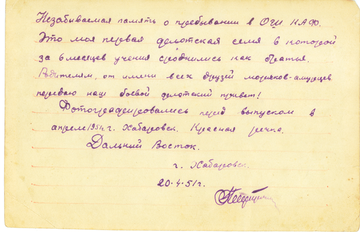 Незабываемая память о пребывании в ОУШ КАФ.
Это моя первая флотская семя в которой
за 6 месяцев учения сроднились как братья.
от имени всех друзей моряков-амурцев
передаю наш боевой флотский привет!
Фотографировались перед выпуском в
апреле 1951 г. Хабаровск. Красная речка.
Дальний Восток.
г. Хабаровск.
20-4-51г.